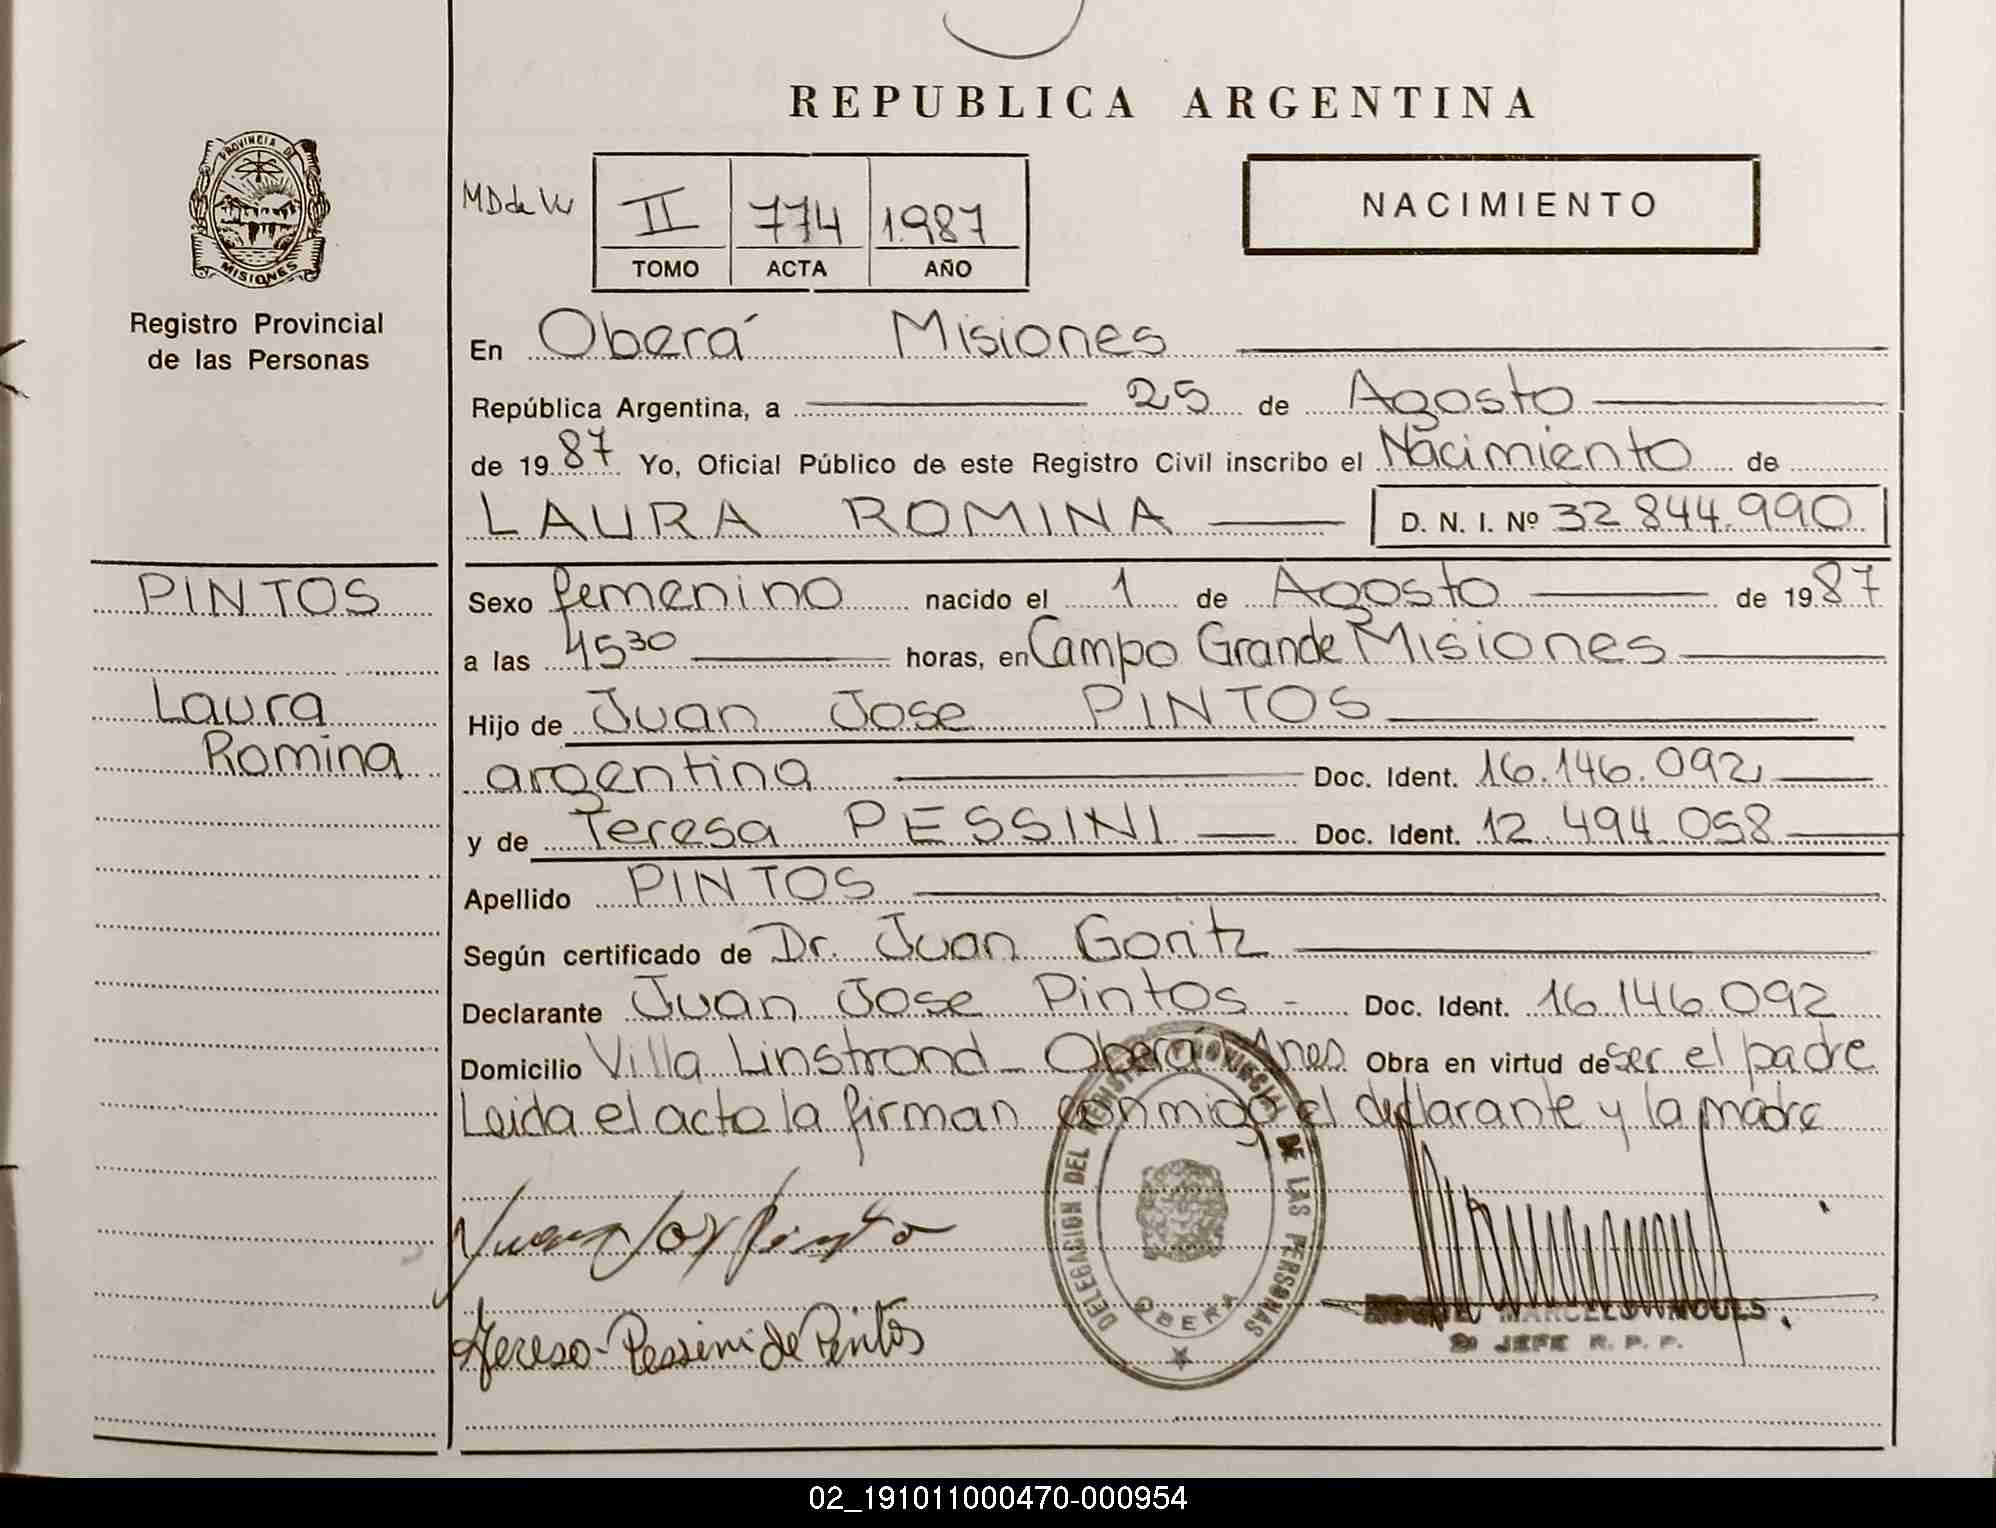 REPUBLICA ARGENTINA
PROVINCIA DE
MISIONES
Registro Provincial
de las Personas
II 774 1987
TOMO ACTA AÑO
NACIMIENTO
En Oberá Misiones
República Argentina, a 25 de Agosto
de 1987 Yo, Oficial Público de este Registro Civil inscribo el Nacimiento de
LAURA ROMINA D. N. I. Nº 32 844.990
PINTOS
Laura
Romina
Sexo femenino nacido el 1 de Agosto de 1987
a las 4530 horas, en Campo Grande Misiones
Hijo de Juan Jose PINTOS
argentina Doc. Ident. 16.146.092
y de Teresa PESSINI Doc. Ident. 12.494.058
Apellido PINTOS
Según certificado de Dr. Juan
Declarante Juan Jose Pintos - Doc. Ident. 16.146.092
Domicilio Villa Linstrond - Oberá Mnes Obra en virtud de ser el padre
Leida el acto la firman conmigo el declarante y la madre
DELEGACION DEL REGISTRO PROVINCIAL DE LAS PERSONAS
OBERA
Teresa-Pessini de Pintos
JEFE R. P. P.
02_191011000470-000954